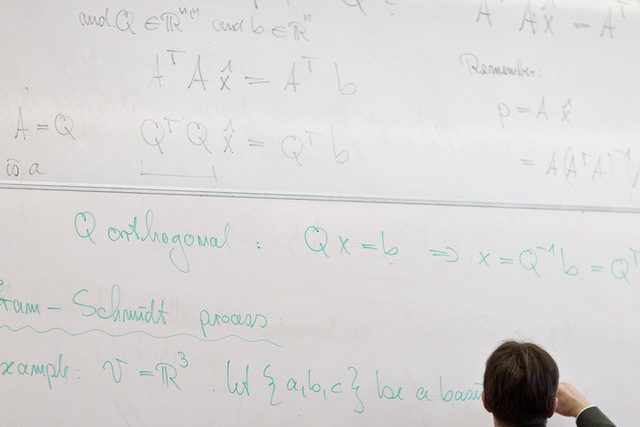 and Q ∈ ℝⁿ,ⁿ and b ∈ ℝⁿ
AᵀAx̂ = Aᵀb
A = Q
QᵀQx̂ = Qᵀb
is a
AᵀAx̂ = Aᵀ
Remember:
p = A·x̂
= A(AᵀA)⁻¹
Q orthogonal : Qx = b ⇒ x = Q⁻¹b = Qᵀ
ram - Schmidt process
xample: V = ℝ³. let {a,b,c} be a basis